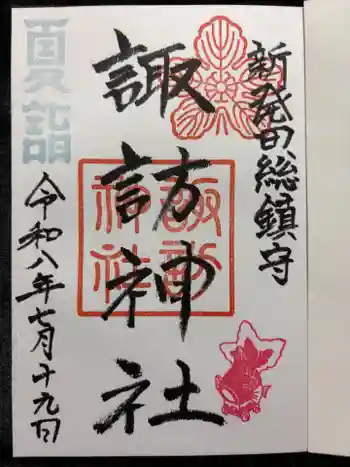 新発田総鎮守
諏訪神社
諏訪神社
夏詣
令和八年七月十九日